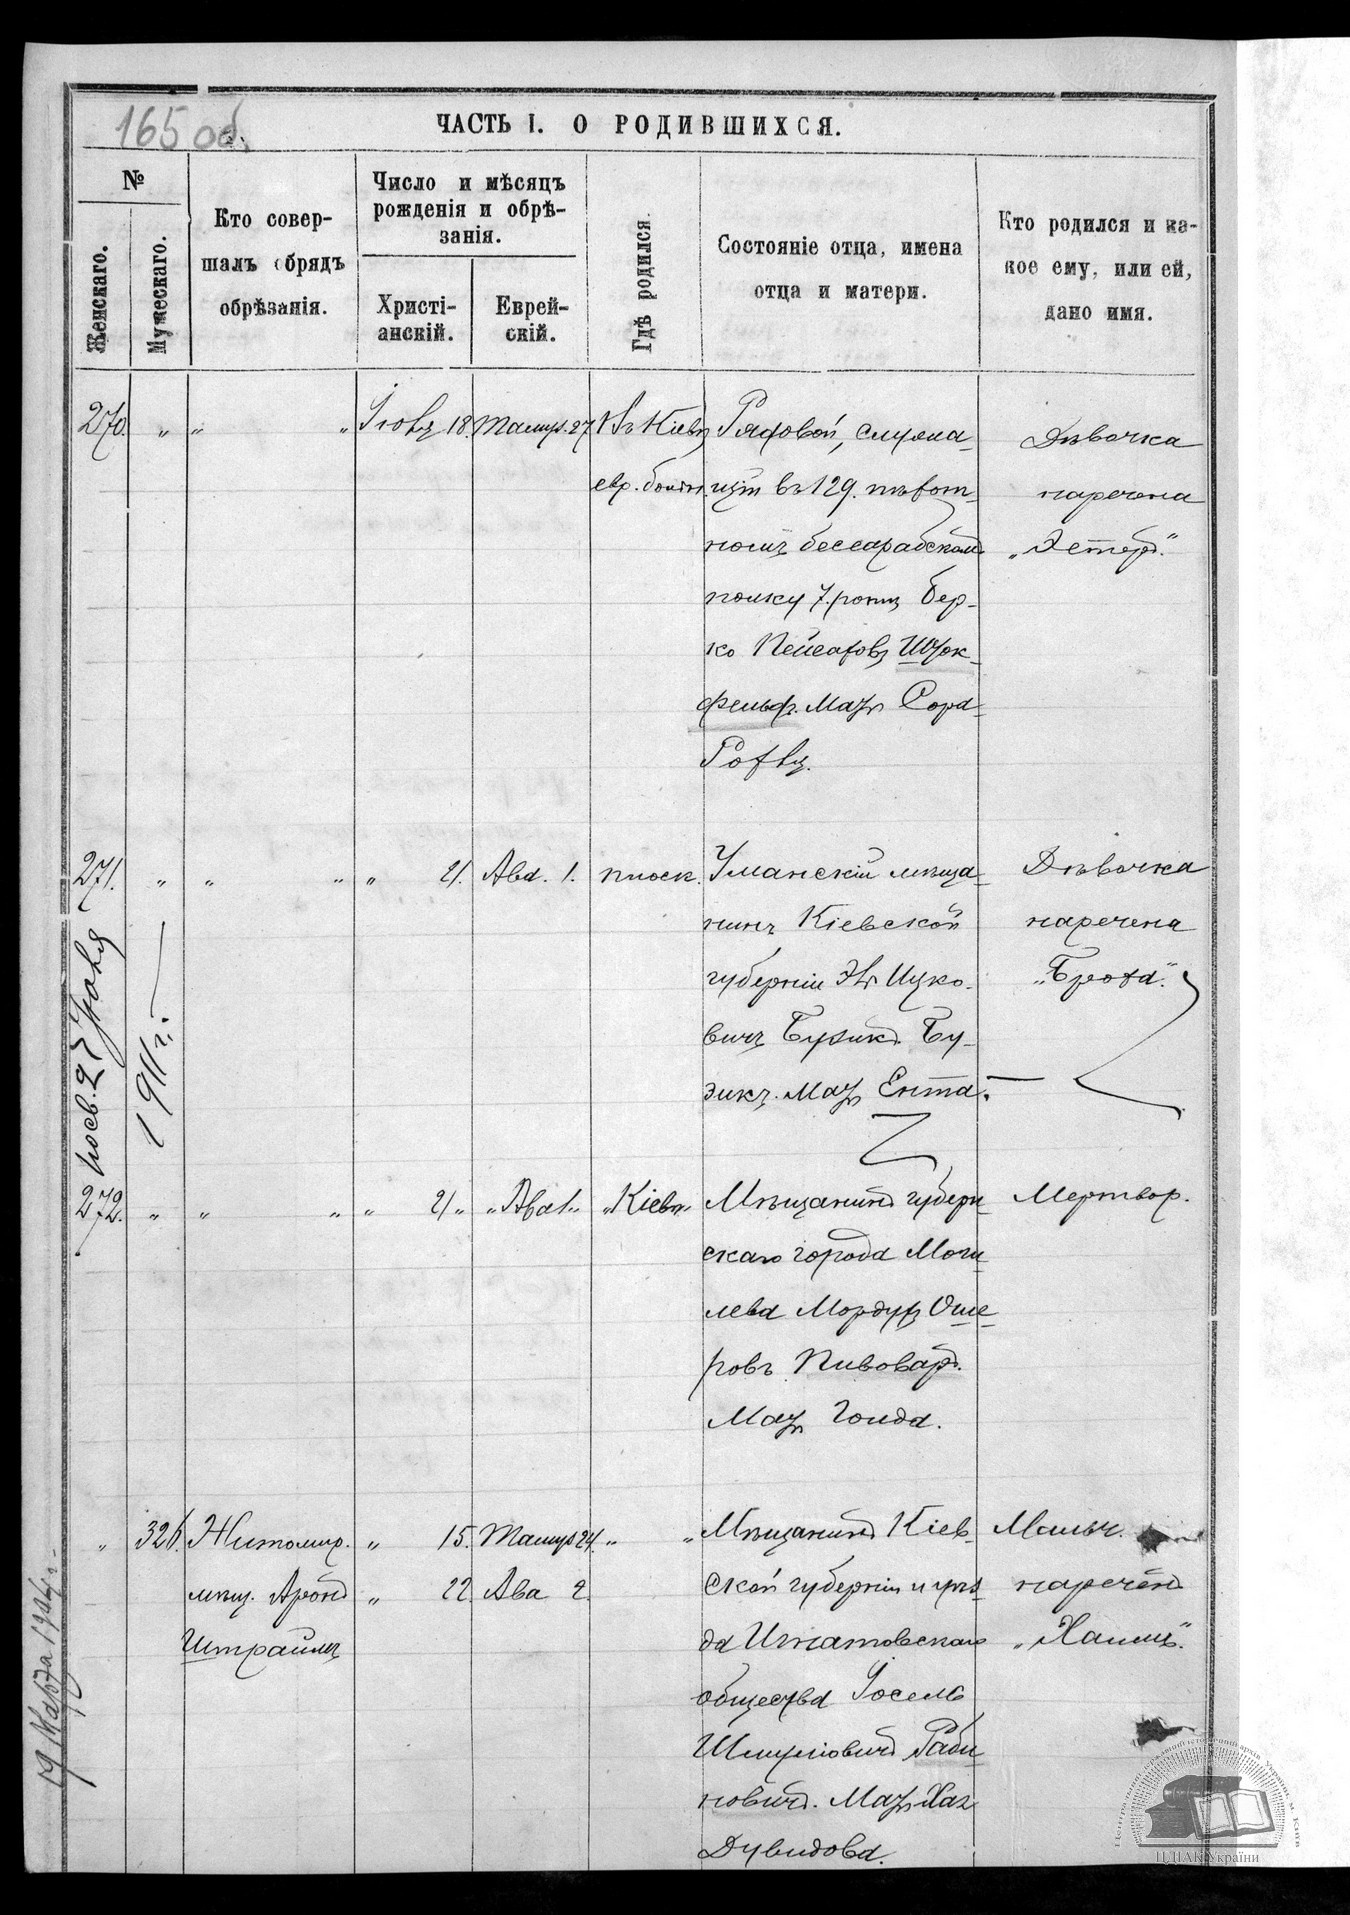 165 об.
ЧАСТЬ I. О РОДИВШИХСЯ.
№
Женскаго.
Мужескаго.
Кто совер-
шалъ обрядъ
обрѣзанія.
Число и мѣсяцъ
рожденія и обрѣ-
занія.
Христі-
анскій.
Еврей-
скій.
Гдѣ родился.
Состояніе отца, имена
отца и матери.
Кто родился и ка-
кое ему, или ей,
дано имя.
270. " " " Іюля 18. Тамуз. 27 Въ Кіевѣ
евр. больн.
Рядовой, служа-
щій въ 129. пѣхот-
номъ бессарабскомъ
полку 7. роты Бер-
ко Пейсаховъ Шток-
фельдъ. Мать Сора-
Девочка
наречена
„Эстеръ."
271. " " " " 21. Ава. 1. плоск.
Уманскій мѣща-
нинъ Кіевской
губерніи Эль Ицко-
вичъ Бузикъ. Бу-
зикъ. Мать Ента.
Дѣвочка
наречена
„Броха."
1911 г.
272. " " " " 21 " " Ава 1. " " Кіевъ "
Мѣщанинъ губерн-
скаго города Моги-
лева Мордухъ Оше-
ровъ Пивоваръ.
Мать Голда.
Мертвор.
" 326. Житомир. " 15. Тамуз 24. " "
мѣщ. Аронъ " 22. Ава 2.
Штраймъ
Мѣщанинъ Кіев-
ской губерніи и уѣз-
да Игнатовскаго
общества Іосель
Шмулiовичъ Раби-
новичъ. Мать Хая
Дувидова.
Мальч.
нареченъ
„Хаимъ."
19 Марта 1904 г.
ЦДІАК України